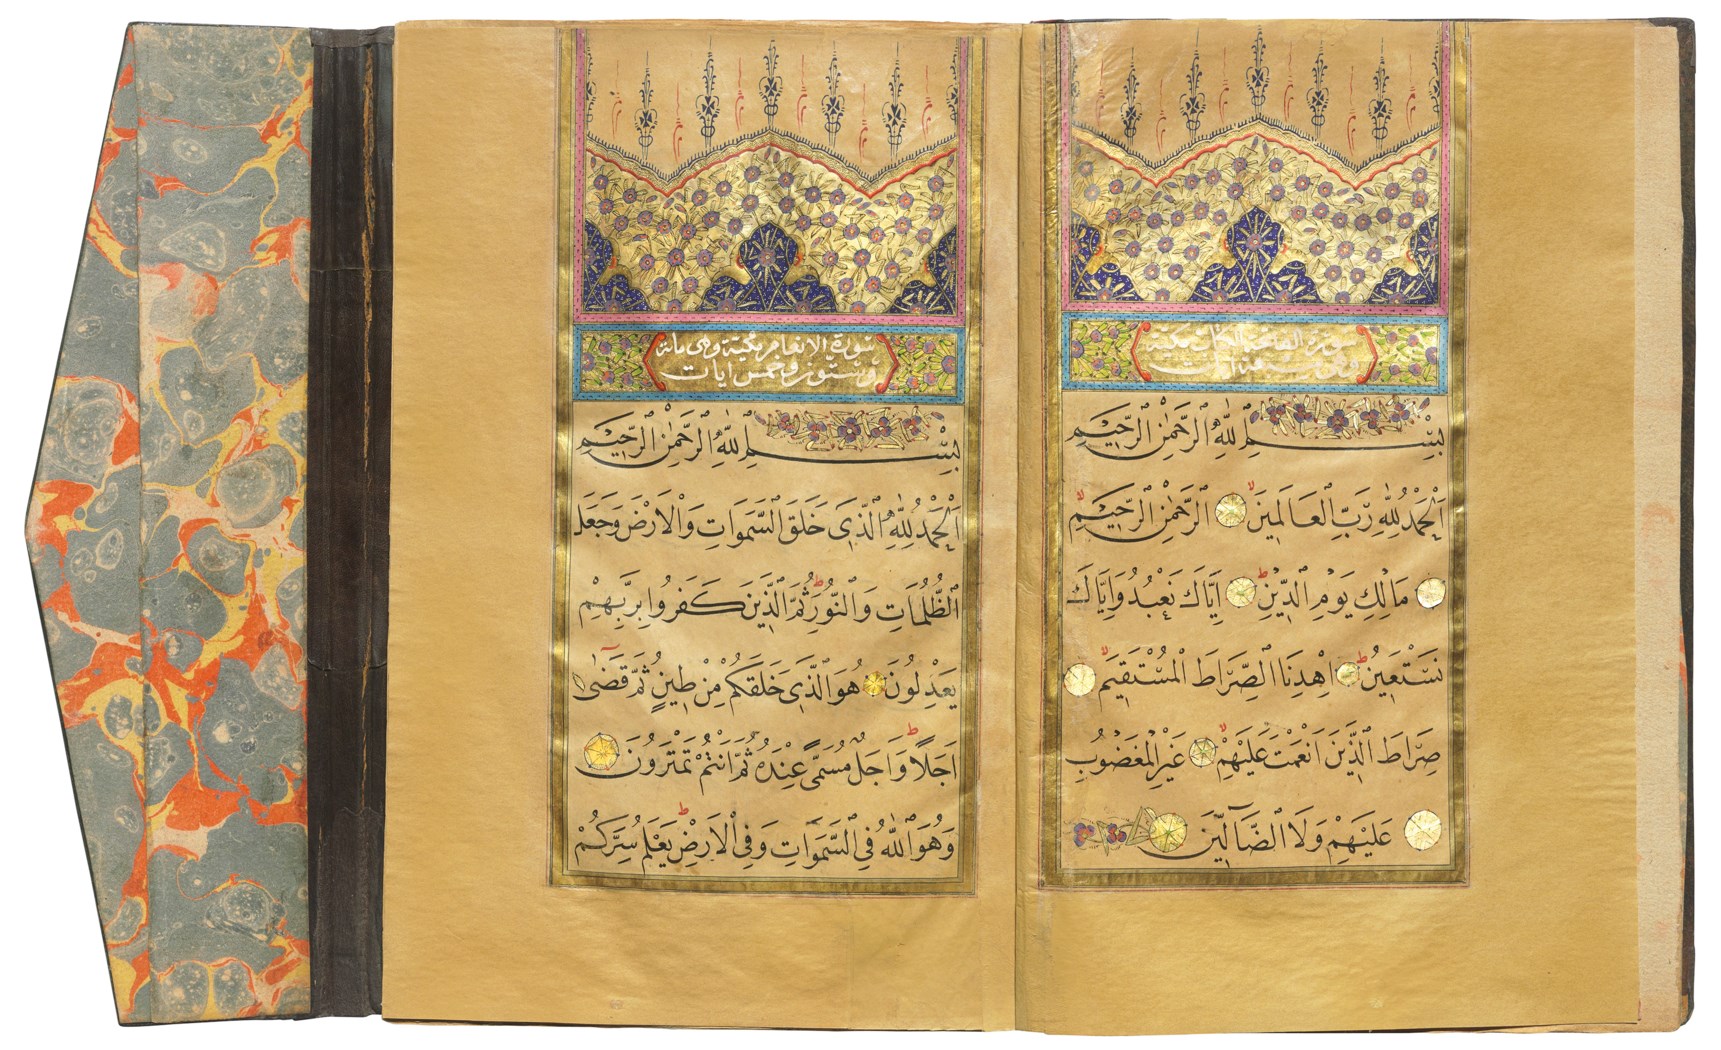 سورة الفاتحة الكتاب مكية
وهى سبعة آيات
بِسْمِ اللّٰهِ الرَّحْمٰنِ الرَّحِيمِ
اَلْحَمْدُ لِلّٰهِ رَبِّ الْعَالَمِينَ لا الرَّحْمٰنِ الرَّحِيمِ لا
مَالِكِ يَوْمِ الدِّينِ ط اِيَّاكَ نَعْبُدُ وَاِيَّاكَ
نَسْتَعِينُ ط اِهْدِنَا الصِّرَاطَ الْمُسْتَقِيمَ لا
صِرَاطَ الَّذِينَ اَنْعَمْتَ عَلَيْهِمْ لا غَيْرِ الْمَغْضُوبِ
عَلَيْهِمْ وَلَا الضَّالِّينَ
سورة الانعام مكية وهى مائة
وستون وخمس ايات
بِسْمِ اللّٰهِ الرَّحْمٰنِ الرَّحِيمِ
اَلْحَمْدُ لِلّٰهِ الَّذِى خَلَقَ السَّمَوَاتِ وَالْاَرْضَ وَجَعَلَ
الظُّلُمَاتِ وَالنُّورَ ط ثُمَّ الَّذِينَ كَفَرُوا بِرَبِّهِمْ
يَعْدِلُونَ هُوَ الَّذِى خَلَقَكُمْ مِنْ طِينٍ ثُمَّ قَضٰى
اَجَلًا ط وَاَجَلٌ مُسَمًّى عِنْدَهُ ثُمَّ اَنْتُمْ تَمْتَرُونَ
وَهُوَ اللّٰهُ فِى السَّمَوَاتِ وَفِى الْاَرْضِ ط يَعْلَمُ سِرَّكُمْ